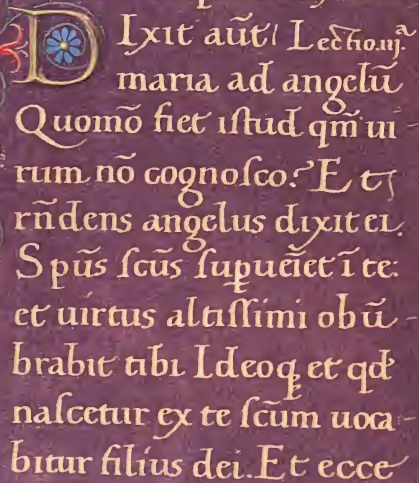 Dixit aūt Lectio.iij.ª
maria ad angelū
Quomō fiet iſtud qm̄ ui-
rum nō cognoſco? Et
rn̄dens angelus dixit ei.
Spūs ſcūs ſuꝑueīet ī te:
et uirtus altiſſimi obū-
brabit tibi Ideoq̨ et qđ
naſcetur ex te ſcūm uoca-
bitur filius dei. Et ecce